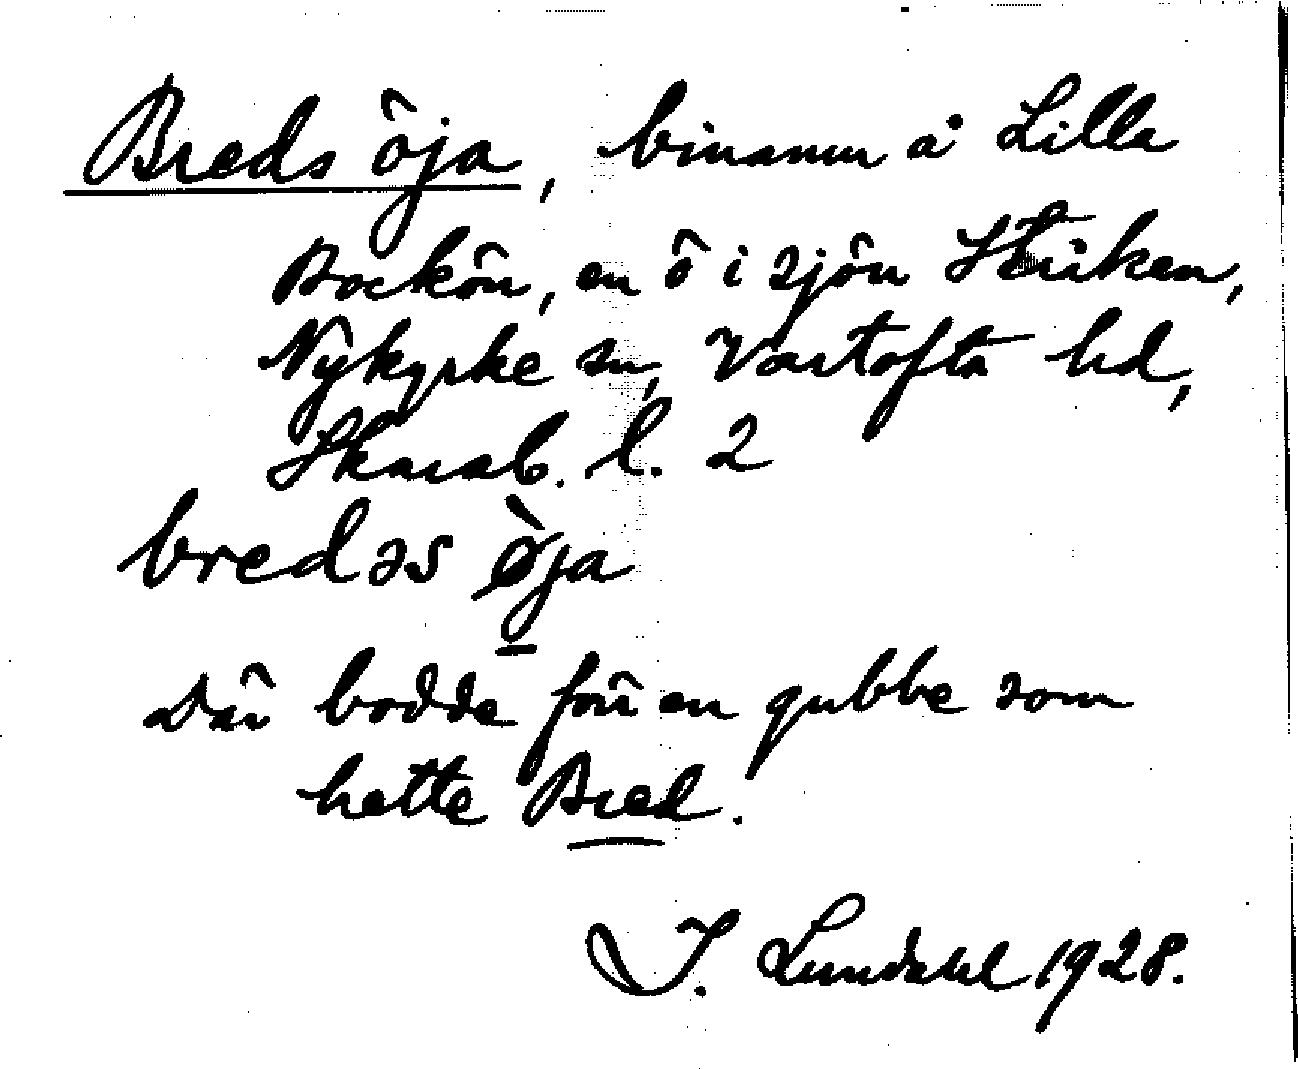 Breds öja, binamn å Lilla
Bockön, en ö i sjön Stråken,
Nykyrke sn, Vartofta hd,
Skarab. l. 2
bredəs ø̀ja
Där bodde förr en gubbe som
hette Bred.
I. Lundahl 1928.